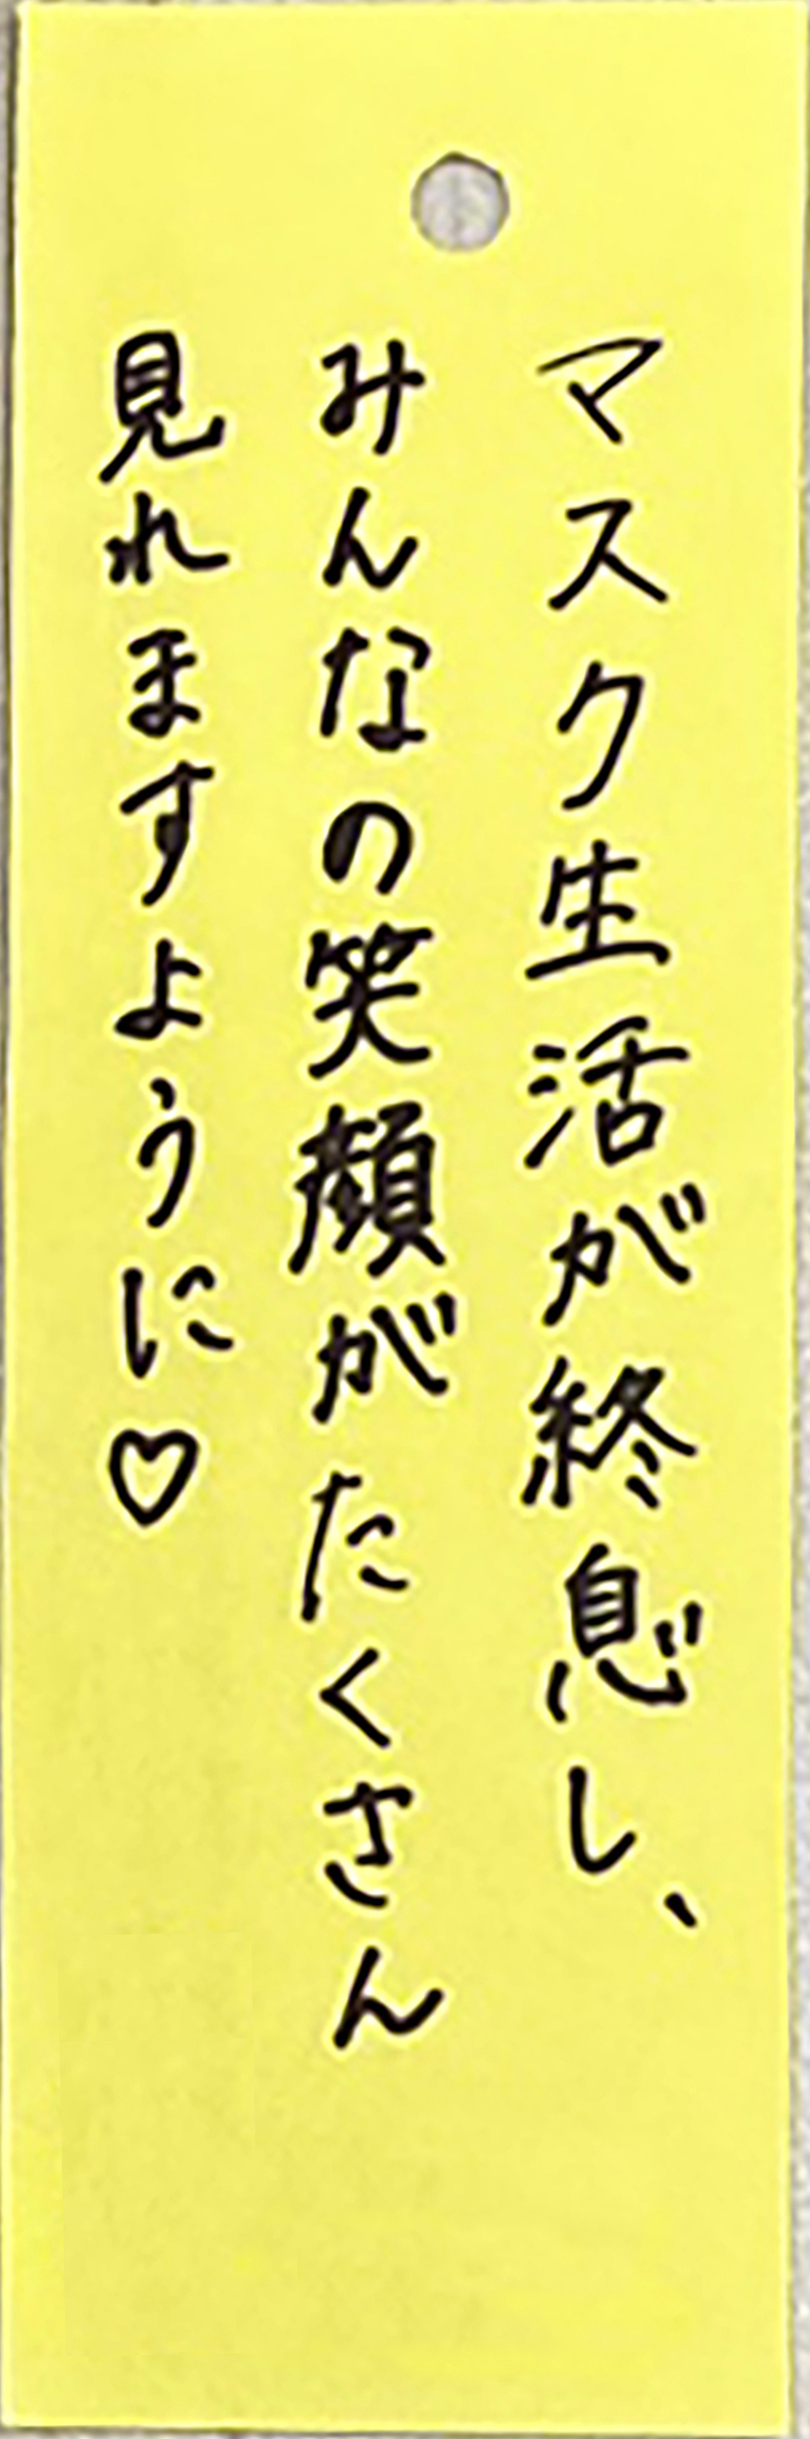 マスク生活が終息し、
みんなの笑顔がたくさん
見れますように♡